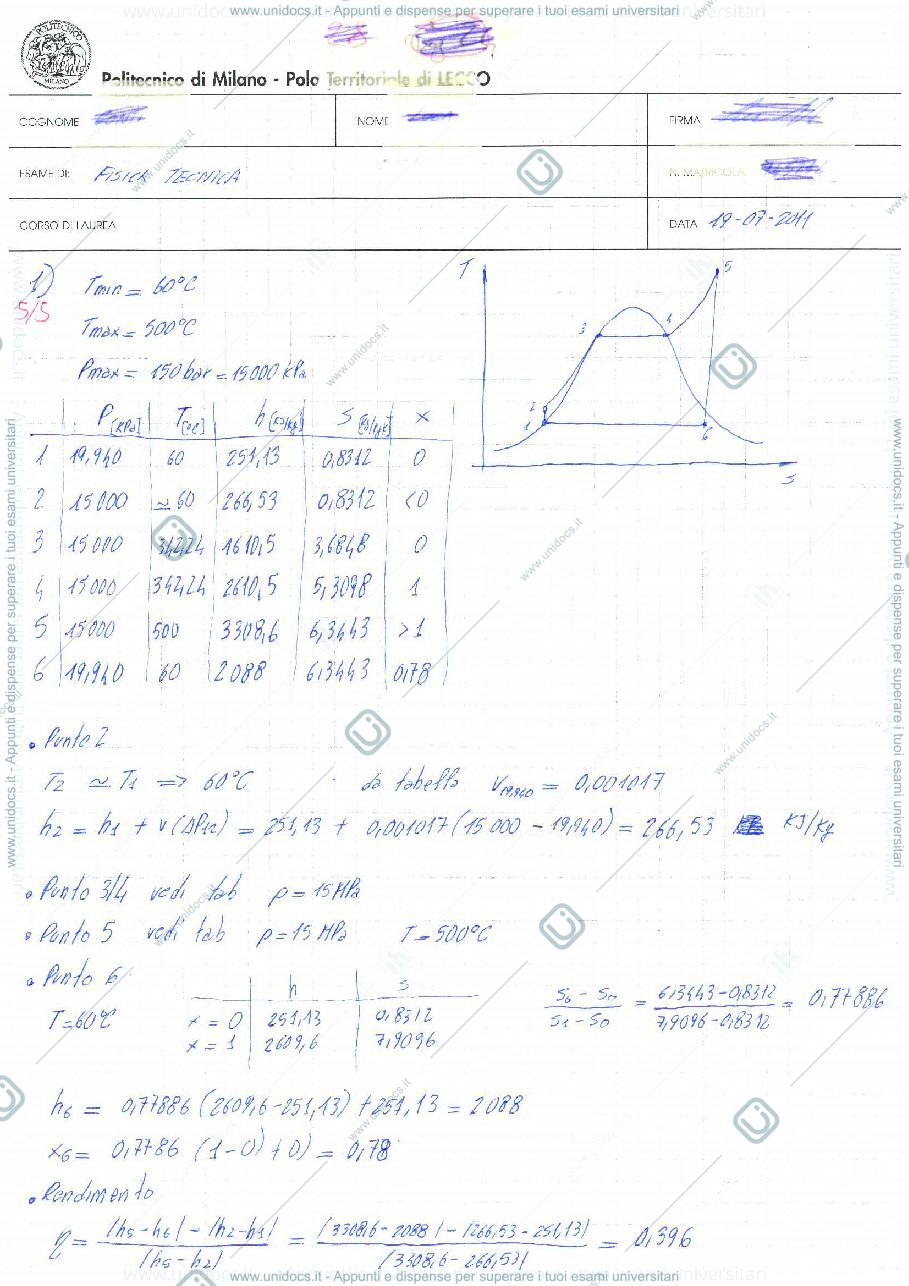 www.unidocs.it - Appunti e dispense per superare i tuoi esami universitari
POLITECNICO
MILANO
Politecnico di Milano - Polo Territoriale di LECCO
COGNOME NOME FIRMA
ESAME DI: FISICA TECNICA N. MATRICOLA
CORSO DI LAUREA DATA 19-07-2011
1) Tmin = 60°C
5/5
Tmax = 500°C
Pmax = 150 bar = 15000 kPa
T 5
3 4
2
1 6
S
P [KPa] T [°C] h [KJ/Kg] S [KJ/KgK] x
1 19,940 60 251,13 0,8312 0
2 15000 ≃ 60 266,53 0,8312 <0
3 15000 342,24 1610,5 3,6848 0
4 15000 342,24 2610,5 5,3098 1
5 15000 500 3308,6 6,3443 >1
6 19,940 60 2088 6,3443 0,78
• Punto 2
T2 ≃ T1 => 60°C da tabella v19,940 = 0,001017
h2 = h1 + v(ΔP12) = 251,13 + 0,001017(15000 - 19,940) = 266,53 KJ/Kg
• Punto 3/4 vedi tab p = 15 MPa
• Punto 5 vedi tab p = 15 MPa T = 500°C
• Punto 6
h s
T=60°C x = 0 251,13 0,8312
x = 1 2609,6 7,9096
S6 - S0 / S1 - S0 = 6,3443-0,8312 / 7,9096-0,8312 = 0,77886
h6 = 0,77886 (2609,6-251,13) + 251,13 = 2088
x6 = 0,7786 (1-0) + 0) = 0,78
• Rendimento
η = |h5-h6| - |h2-h1| / |h5-h2| = |3308,6 - 2088| - |266,53 - 251,13| / |3308,6 - 266,53| = 0,396
www.unidocs.it - Appunti e dispense per superare i tuoi esami universitari